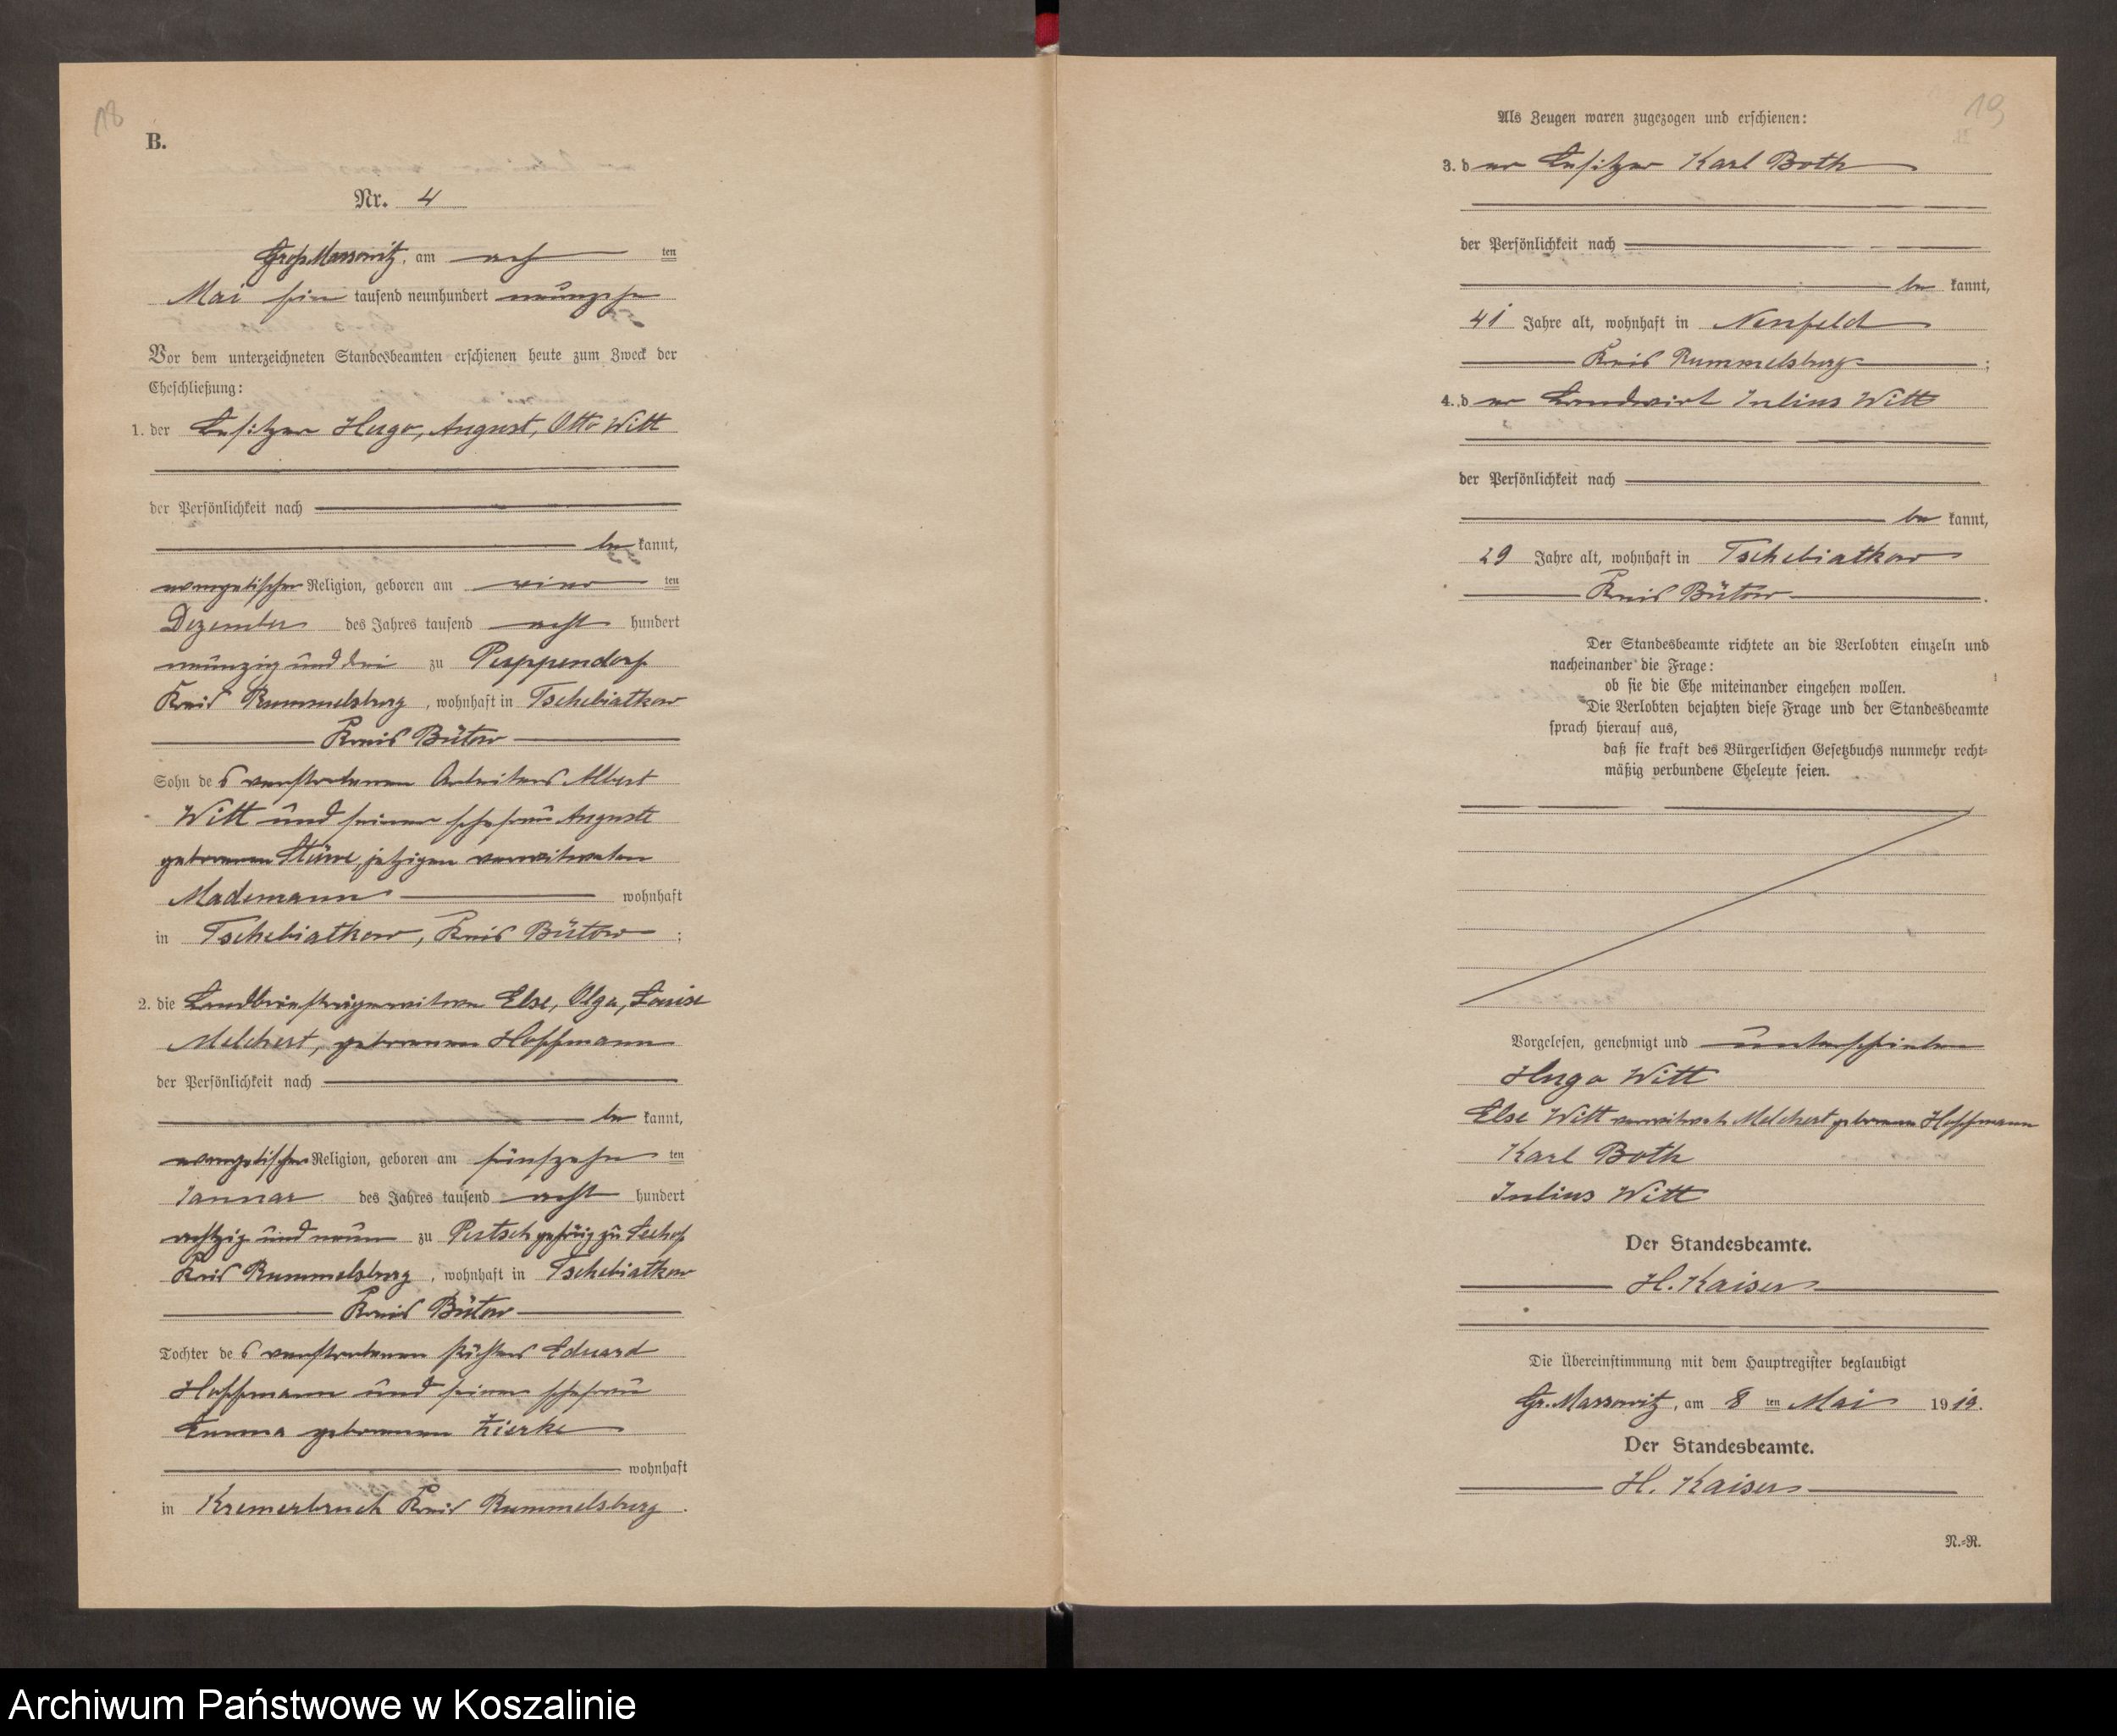 18
B.
Nr. 4
Groß Massowitz, am acht ten
Mai ein tausend neunhundert neunzehn
Vor dem unterzeichneten Standesbeamten erschienen heute zum Zweck der
Eheschließung:
1. der Besitzer Hugo, August, Otto Witt
der Persönlichkeit nach
be kannt,
evangelischer Religion, geboren am ten
Dezember des Jahres tausend acht hundert
neunzig und drei zu Puppendorf
Kreis Rummelsburg, wohnhaft in Tschebiatkow
Kreis Bütow
Sohn des verstorbenen Arbeiters Albert
Witt und seiner Ehefrau Auguste
geborenen Stüwe, jetzigen verwitweten
Mademann wohnhaft
in Tschebiatkow, Kreis Bütow;
2. die Landbriefträgerwitwe Else, Olga, Louise
Melchert, geborenen Hoffmann
der Persönlichkeit nach
be kannt,
evangelischer Religion, geboren am fünfzehn ten
Januar des Jahres tausend acht hundert
achtzig und neun zu gehörig zu
Kreis Rummelsburg, wohnhaft in Tschebiatkow
Kreis Bütow
Tochter des verstorbenen Eduard
Hoffmann und seiner Ehefrau
Emma geborenen Zierke
wohnhaft
in Kremerbruch Kreis Rummelsburg.
19
Als Zeugen waren zugezogen und erschienen:
3. der Besitzer Karl Both
der Persönlichkeit nach
be kannt,
41 Jahre alt, wohnhaft in Neufeld
Kreis Rummelsburg;
4. der Landwirt Julius Witt
der Persönlichkeit nach
be kannt,
29 Jahre alt, wohnhaft in Tschebiatkow
Kreis Bütow.
Der Standesbeamte richtete an die Verlobten einzeln und
nacheinander die Frage:
ob sie die Ehe miteinander eingehen wollen.
Die Verlobten bejahten diese Frage und der Standesbeamte
sprach hierauf aus,
daß sie kraft des Bürgerlichen Gesetzbuchs nunmehr recht-
mäßig verbundene Eheleute seien.
Vorgelesen, genehmigt und unterschrieben
Hugo Witt
Else Witt verwitwete Melchert geborene Hoffmann
Karl Both
Julius Witt
Der Standesbeamte.
H. Kaiser
Die Übereinstimmung mit dem Hauptregister beglaubigt
Gr. Massowitz, am 8 ten Mai 1919.
Der Standesbeamte.
H. Kaiser
N.-R.
Archiwum Państwowe w Koszalinie